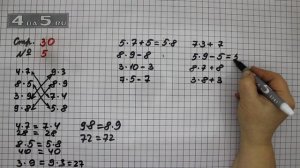 4 ДЗ 5.RU
Стр. 30
№ 5
4·7 9·3
8·5 8·9
3·9 7·4
9·8 5·8
4·7 = 7·4
28 = 28
8·5 = 5·8
40 = 40
3·9 = 9·3 = 27
9·8 = 8·9
72 = 72
5·7+5=5·8
8·9-8
3·10-3
7·5-7
7·3+7
5·9-5=5
8·7+8
3·8+3